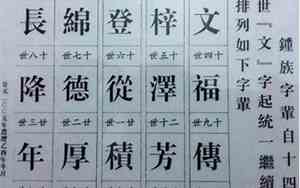 鍾族字輩自十四
世『文』字起統一繼續
排列如下字輩
文 梓 登 綿 長
十四世 十五世 十六世 十七世 十八世
福 澤 從 德 降
十九世 二十世 廿一世 廿二世 廿三世
傳 芳 積 厚 年
二〇〇五年農曆乙酉年